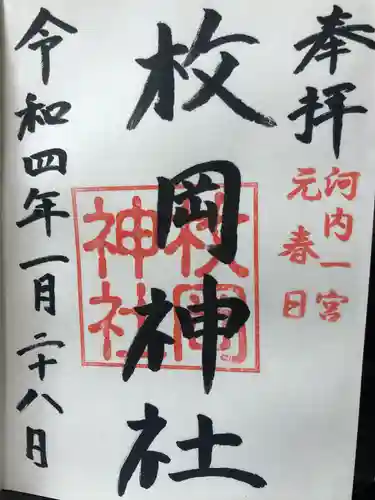 奉拝
河内一宮
元春日
枚岡神社
枚岡
神社
令和四年一月二十八日